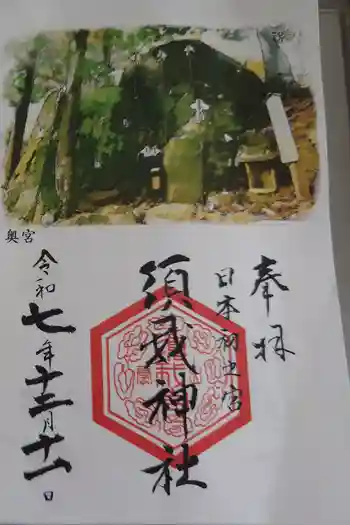 奥宮
奉拝
日本初之宮
須我神社
令和七年十二月十一日